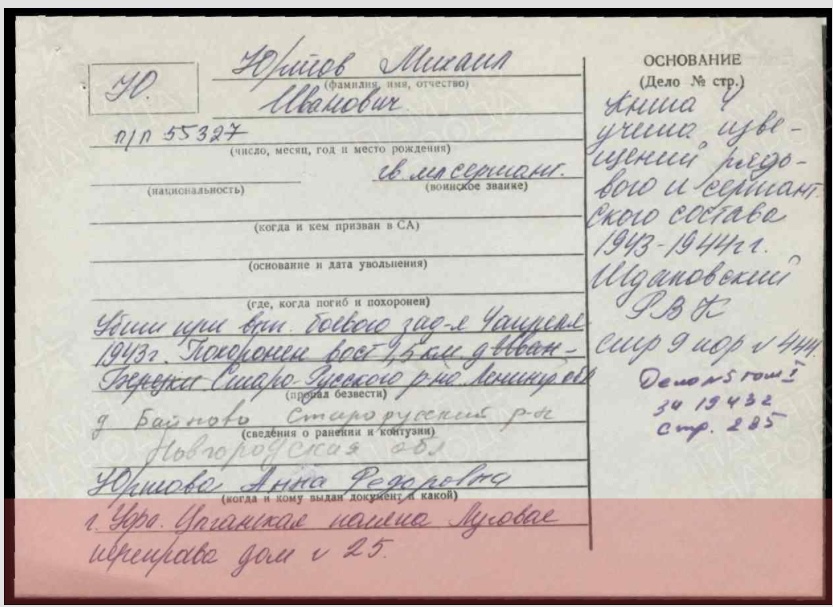 Ю.
Юртов Михаил
(фамилия, имя, отчество)
Иванович
п/п 55327
(число, месяц, год и место рождения)
гв мл сержант.
(национальность)
(воинское звание)
(когда и кем призван в СА)
(основание и дата увольнения)
(где, когда погиб и похоронен)
Убит при вып. боевого зад-я 4 апреля
1943г. Похоронен вост 1,5 км д Иван-
Березки Старо-Русского р-на Ленингр обл
(пропал безвести)
д Байново Старорусский р-н
(сведения о ранении и контузии)
Новгородская обл
Юртова Анна Федоровна
(когда и кому выдан документ и какой)
г. Уфа. Цыганская поляна Луговая
переправа дом № 25.
ОСНОВАНИЕ
(Дело № стр.)
Книга 4
учета изве-
щений рядо-
вого и сержант-
ского состава
1943-1944гг.
Ждановский
РВК
стр 9 пор № 444.
Дело №5 том I
за 1943г
стр. 285